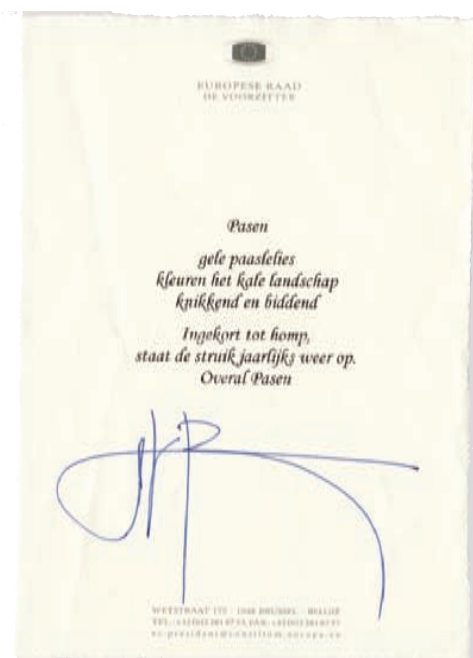 EUROPESE RAAD
DE VOORZITTER
Pasen
gele paaslelies
kleuren het kale landschap
knikkend en biddend
Ingekort tot homp,
staat de struik jaarlijks weer op.
Overal Pasen
WETSTRAAT 175 - 1048 BRUSSEL - BELGIË